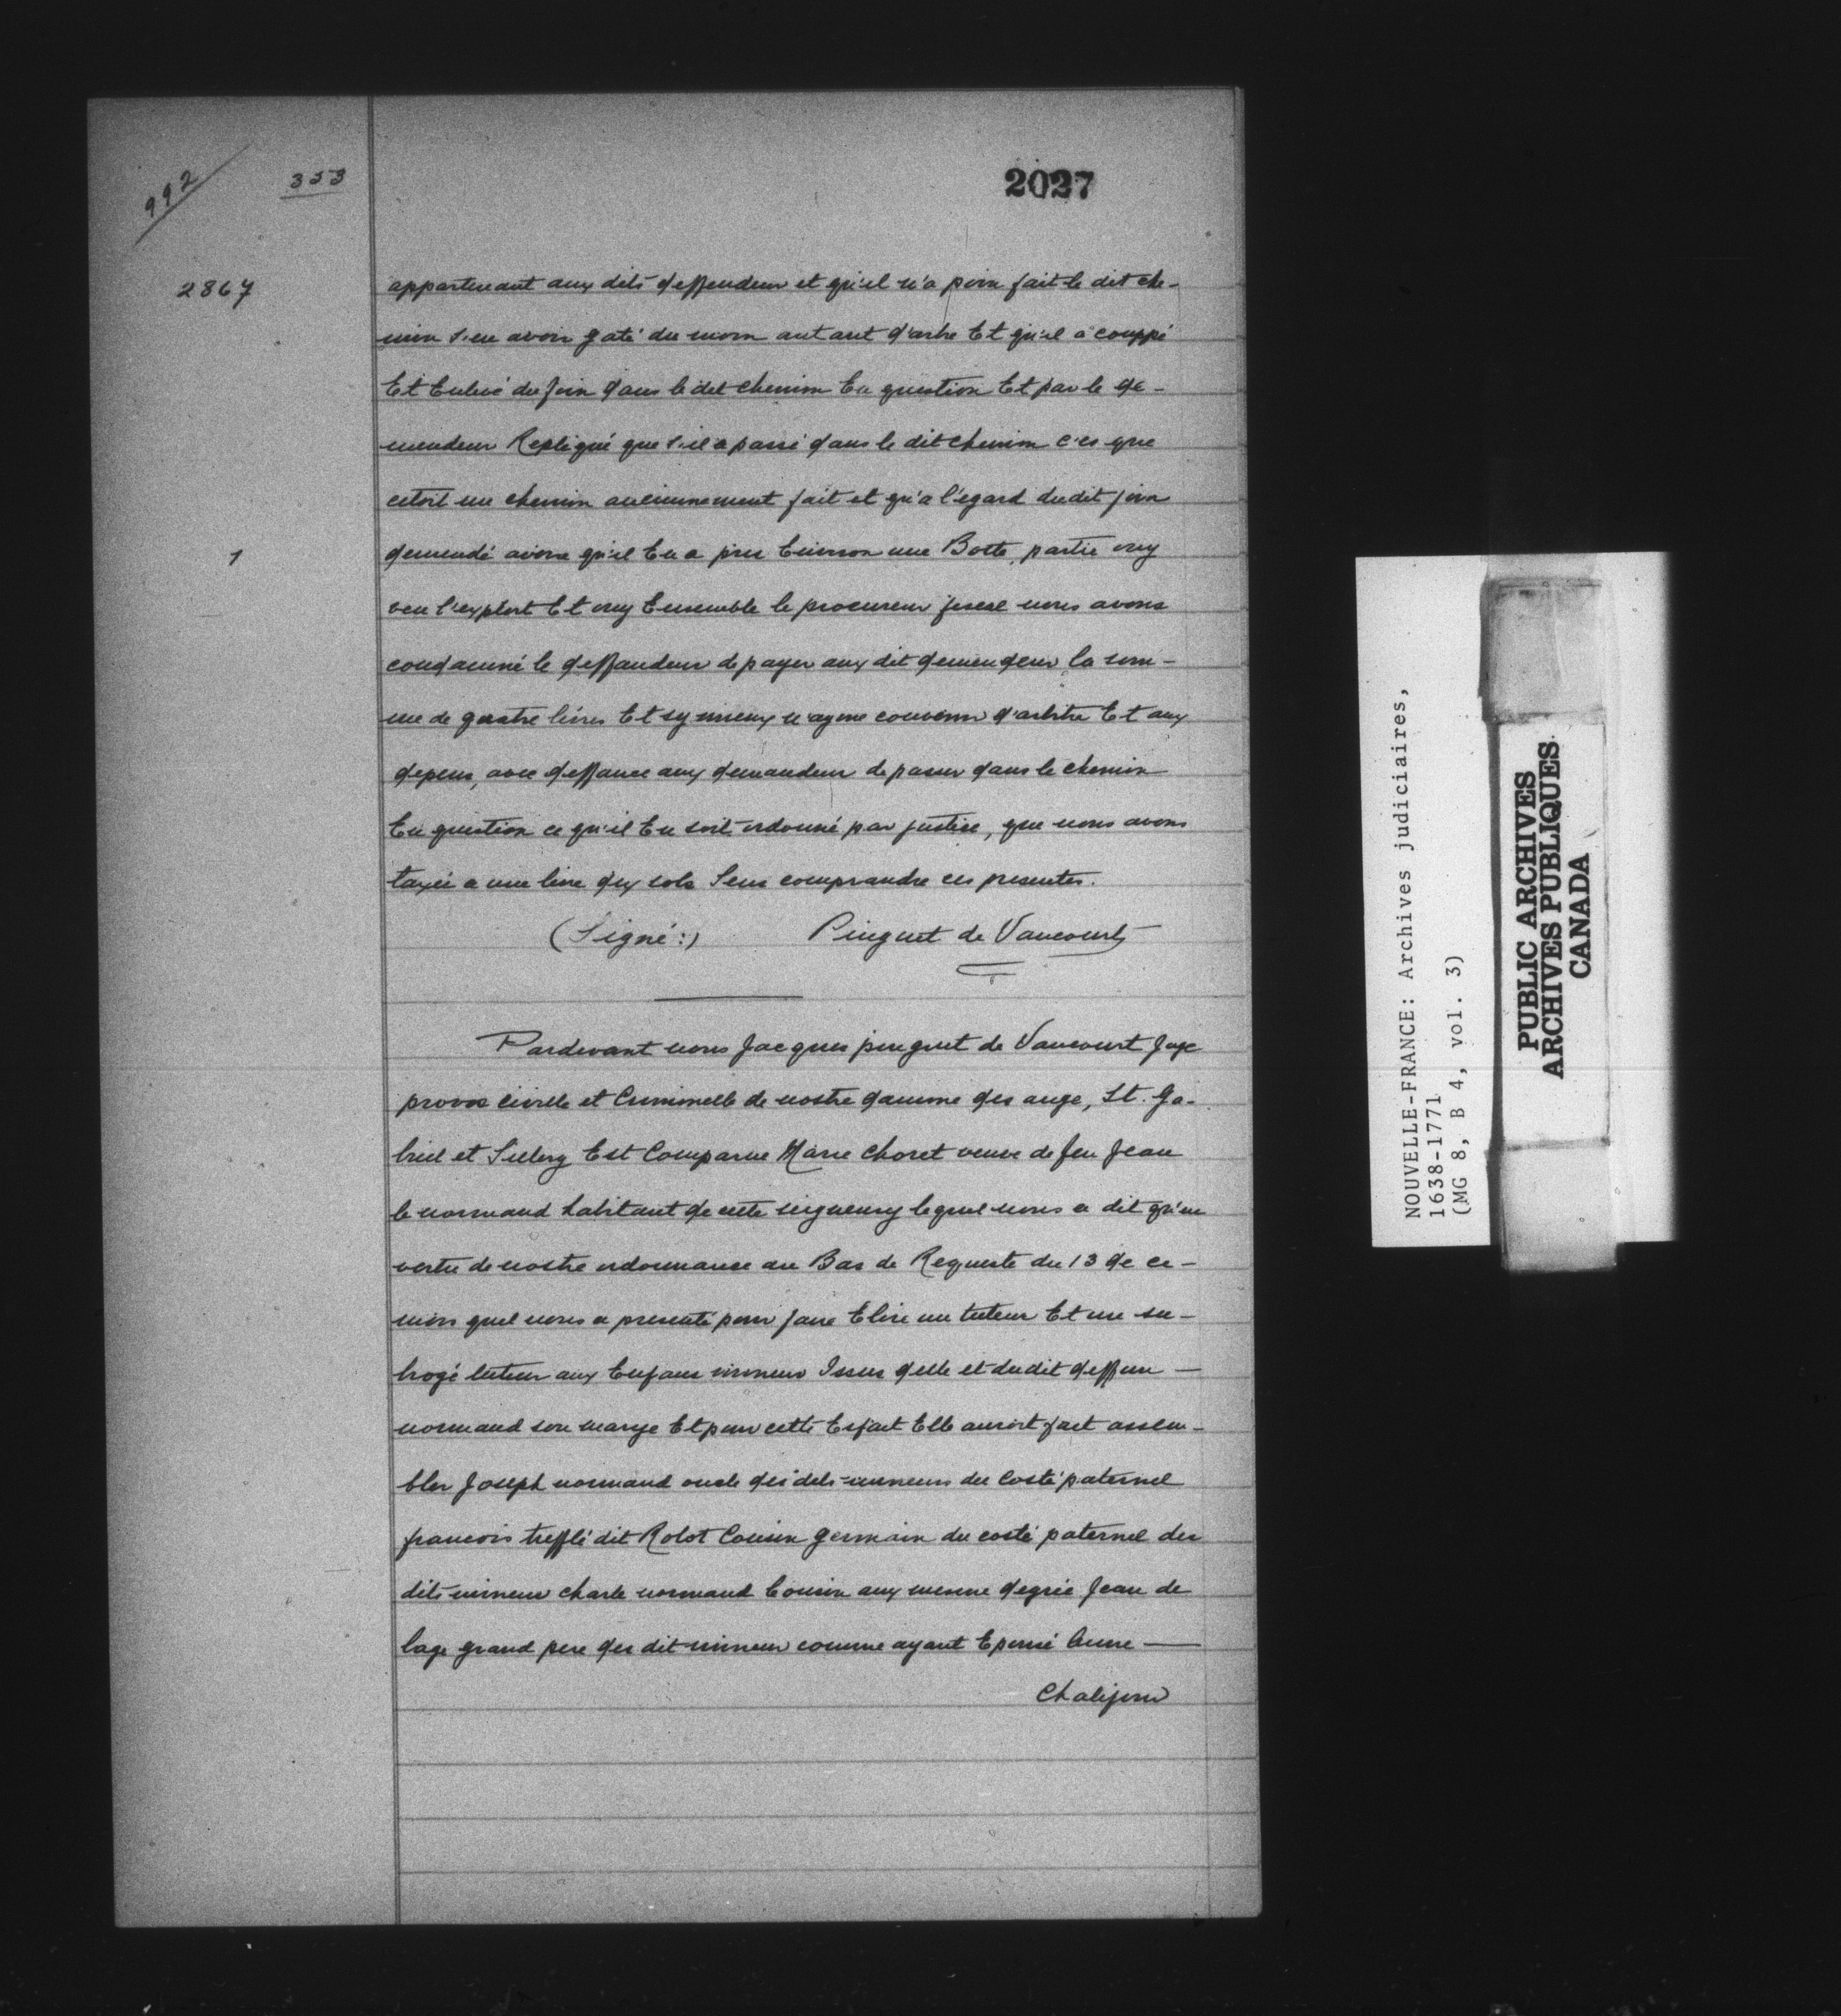 992
353
2027
2867
appartenant aux dits deffendeur et qu'il n'a poin fait le dit che-
min s'en avoir gaté du moin autant d'arbre Et qu'il a couppé
Et Enlevé du foin dans le dit chemin En question Et par le de-
mendeur Repliqué que s'il a passé dans le dit chemin c'es que
cetoit un chemin anciennement fait et qu'a l'egard dudit foin
1
demendé avoue qu'il En a pris Environ une Botte, partie ouy
veu l'exploit Et ouy Ensemble le procureur fiscal nous avons
condamné le deffandeur de payer aux dit demendeur la som-
me de quatre livres Et sy mieux n'ayme convenir d'arbitre Et aux
depens, avec deffance aux demandeur de passer dans le chemin
En question ce qu'il En soit ordonné par justice, que nous avons
taxée a une livre dix sols Sens comprandre ces presentes.
(Signé:) Pinguet de Vaucourt
Pardevant nous Jacques pinguet de Vaucourt Juge
provos civille et Criminelle de nostre damme des ange, St. Ga-
briel et Sillery Est Comparue Marie Choret veuve de feu Jean
le normand habitant de cette seigneury lequel nous a dit qu'en
vertu de nostre ordonnance au Bas de Requeste du 13 de ce-
mois quel nous a presenté pour faire Elire un tuteur Et un su-
brogé tuteur aux Enfans mineur Issus delle et dudit deffun
normand son marye Et pour cette Esfait Elle auroit fait assem-
bler Joseph normand oncle des dits mineurs du Costé paternel
francois trefflé dit Rolot Cousin germain du costé paternel des
dits mineur charle normand Cousin aux mesme degrée Jean de
lage grand pere des dit mineur comme ayant Epousé Anne
Chalifour
NOUVELLE-FRANCE: Archives judiciaires,
1638-1771
(MG 8, B 4, vol. 3)
PUBLIC ARCHIVES
ARCHIVES PUBLIQUES
CANADA